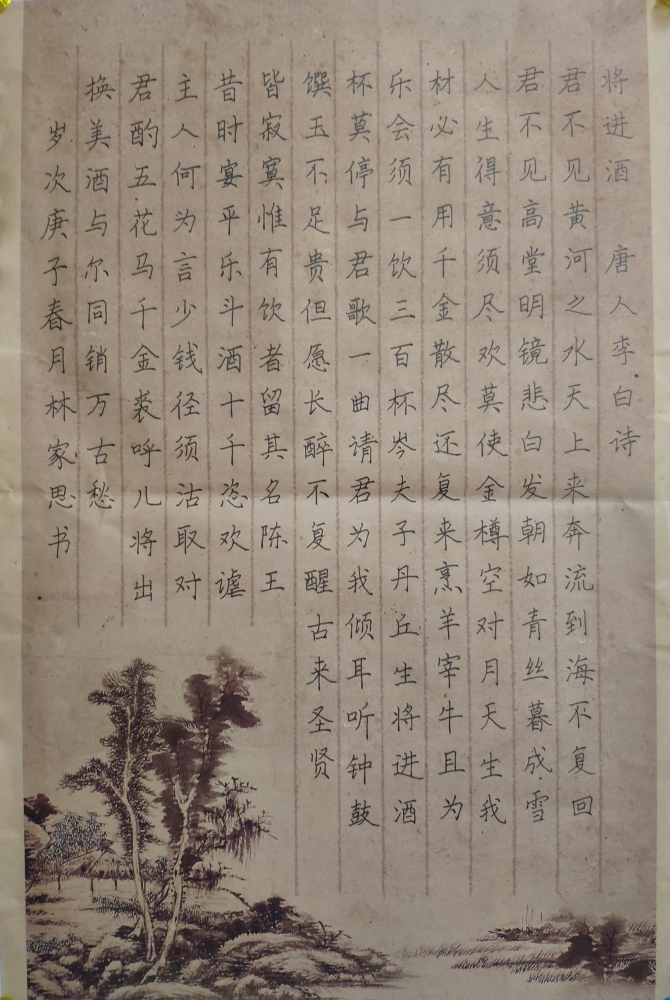 将进酒 唐人李白诗
君不见黄河之水天上来奔流到海不复回
君不见高堂明镜悲白发朝如青丝暮成雪
人生得意须尽欢莫使金樽空对月天生我
材必有用千金散尽还复来烹羊宰牛且为
乐会须一饮三百杯岑夫子丹丘生将进酒
杯莫停与君歌一曲请君为我倾耳听钟鼓
馔玉不足贵但愿长醉不复醒古来圣贤
皆寂寞惟有饮者留其名陈王
昔时宴平乐斗酒十千恣欢谑
主人何为言少钱径须沽取对
君酌五花马千金裘呼儿将出
换美酒与尔同销万古愁
岁次庚子春月林家思书